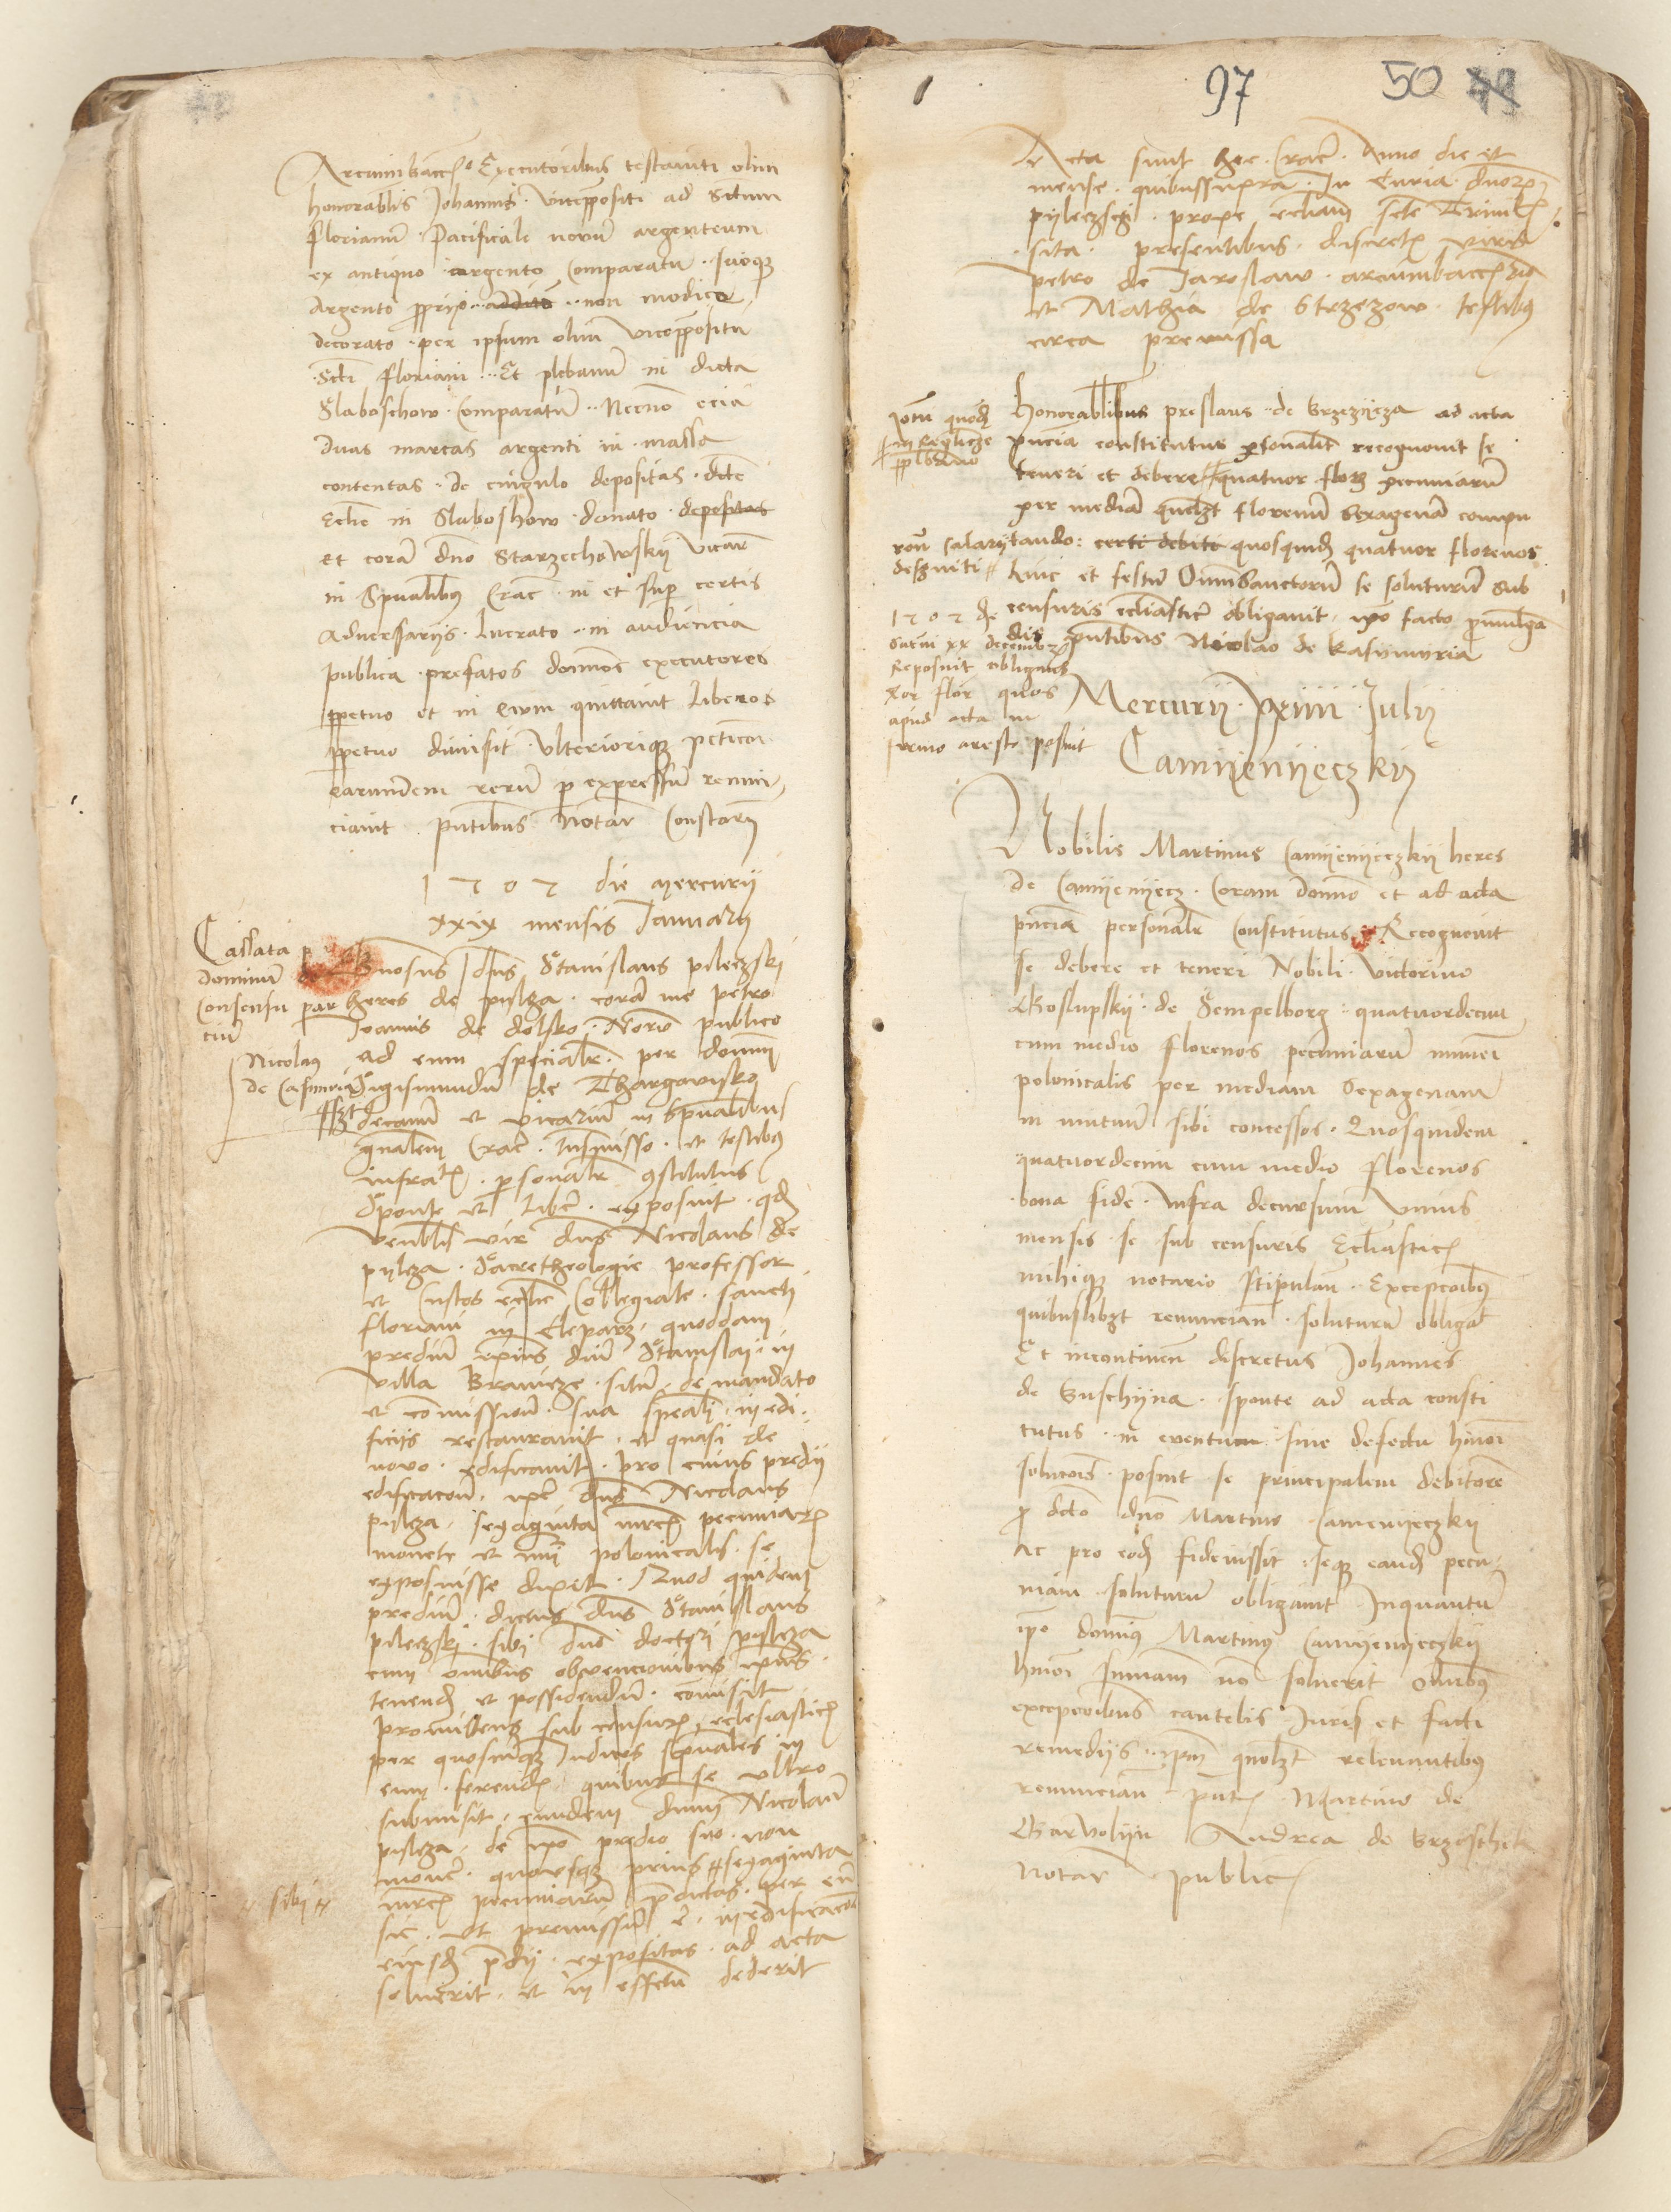 Arcuumbaccō Executoribus testamti olim
honorabilis Johannis viceppositi ad Sctum
florianū Pacificale novū argenteum
ex antiquo argento Comparatū suoq
argento pprijo addito non modico
decorato per ipsum olim viceppositū
Scti floriani Et plebanū in dicta
Slaboschow Comparatū Necnō eciā
duas marcas argenti in massa
contentas de cingulo depositas dcte
Eccle in Slaboshow donato depositas
et corā dno Starzechowskij vicar
in Spualibus Crac in et sup certis
adversarijs Lucrato in audiencia
publica prefatos dominos executores
ppetuo et in evum quittavit Liberos
ppetuo dimisit Ulteriorique peticioi
earundem rerū p expressum renun
ciavit pntibus Notar Constarij
1502 die Mercurij
xxix mensis Januarij
Cassata p
dominū
Consensu par
ciū
Nicolaus
de Casimiria
Gnosus dns Stanislaus pileczski
heres de pylcza corā me petro
Joannis de dolsko Norio publico
ad eum specialr per domnū
Sigismundū de Thargovisko
decanū et vicariū in spualibus
gnalem Crac Transmisso et testibus
infrascr psonalr cstitutus
Sponte et libere exposuit qd
Venblis vir dns Nicolaus de
pylcza Sacre theologie professor
et Custos ecclie Collegiate sancti
floriani in Cleparz quoddam
prediū ipius dni Stanislai in
villa Bronicze sitū de mandato
et comissione sua speali in edi
ficijs restauravit et quasi de
novo edificavit pro cuius predij
edificacione ipse dns Nicolaus
pylcza sexaginta mrcs pecuniar
monete et nūi polonicalis se
exposuisse dixit Quod quidem
prediū dictus dns Stanislaus
pileczski sibi dno doctori pylcza
cum omibus obvencionibus ipius
tenend et possidendū comisit
promittens sub censuris eclesiasticis
per quoscunque Judices spuales in
eum ferendis quibus se ultro
submisit eundem dnum Nicolaū
pylcza de ipo predio suo non
movere quousque prius sexaginta
// sibi //
mrcs pecuniarū pdictas per eū
sic ut premissū e in edificacoe
eiusd pdij expositas ad acta
solverit et in effctu dederit
97 50 49
Acta sunt hec Crac Anno die et
mense quibus supra In Curia dnorū
pyleczsci prope eccliam scte Trinitis
sita presentibus discretis viris
petro de Jaroslaw arcuumbaccrio
et Mathia de Strzezow testibus
circa premissa
Honorabilibus preslaus de Brzeznicza ad acta
pnciā constitutus psonalit recognovit se
teneri et debere quatuor floz pecuniarū
per mediā quelzt florenū sexagenā compu
tando: certi debiti quosquidē quatuor florenos
hinc et festū Omniū Sanctorū se soluturū sub
censuris ecclasticis obligavit ipo facto pmulgā
dis pntibus Nicolao de Kasymyria
ron salarij
deserviti
1502 die
Satni xx decembr
Reposuit obligatus
flor quos
apud acta in
arresto posuit
Mercurij xiiii Julij
Camijenijeczkij
Nobilis Martinus Camijenijeczkij heres
de Camijenijecz Coram domno et ad acta
pnciā personalr Constitutus Recognovit
se debere et teneri Nobili Victorino
Koslupskij de Sempelborg quatuordecim
cum medio florenos pecuniarū numeri
polonicalis per mediam Sexagenam
in mutuū sibi concessos Quosquidem
quatuordecim cum medio florenos
bona fide Infra decursum Unius
mensis se sub censuris Eccliasticis
mihique notario stipulan Excepcoibus
quibuslibzt renuncian soluturū obligat
Et incontinen discretus Johannes
de Buschyna sponte ad acta consti
tutus in eventum sive defectu hmoi
solucois posuit se principalem debitorē
p dcto dno Martino Camenijeczkij
ac pro eod fideiussit seq eand pecu
niam soluturū obligavit Inquantū
ipe dominus Martinus Camijenijeczkij
hmoi sumam nō solverit Omibus
excepcoibus cautelis Juris et facti
remedijs ipm quolzt relevantibus
renuncian pntibus Martino de
Garvolijn Andrea de Brzoschek
Notar public